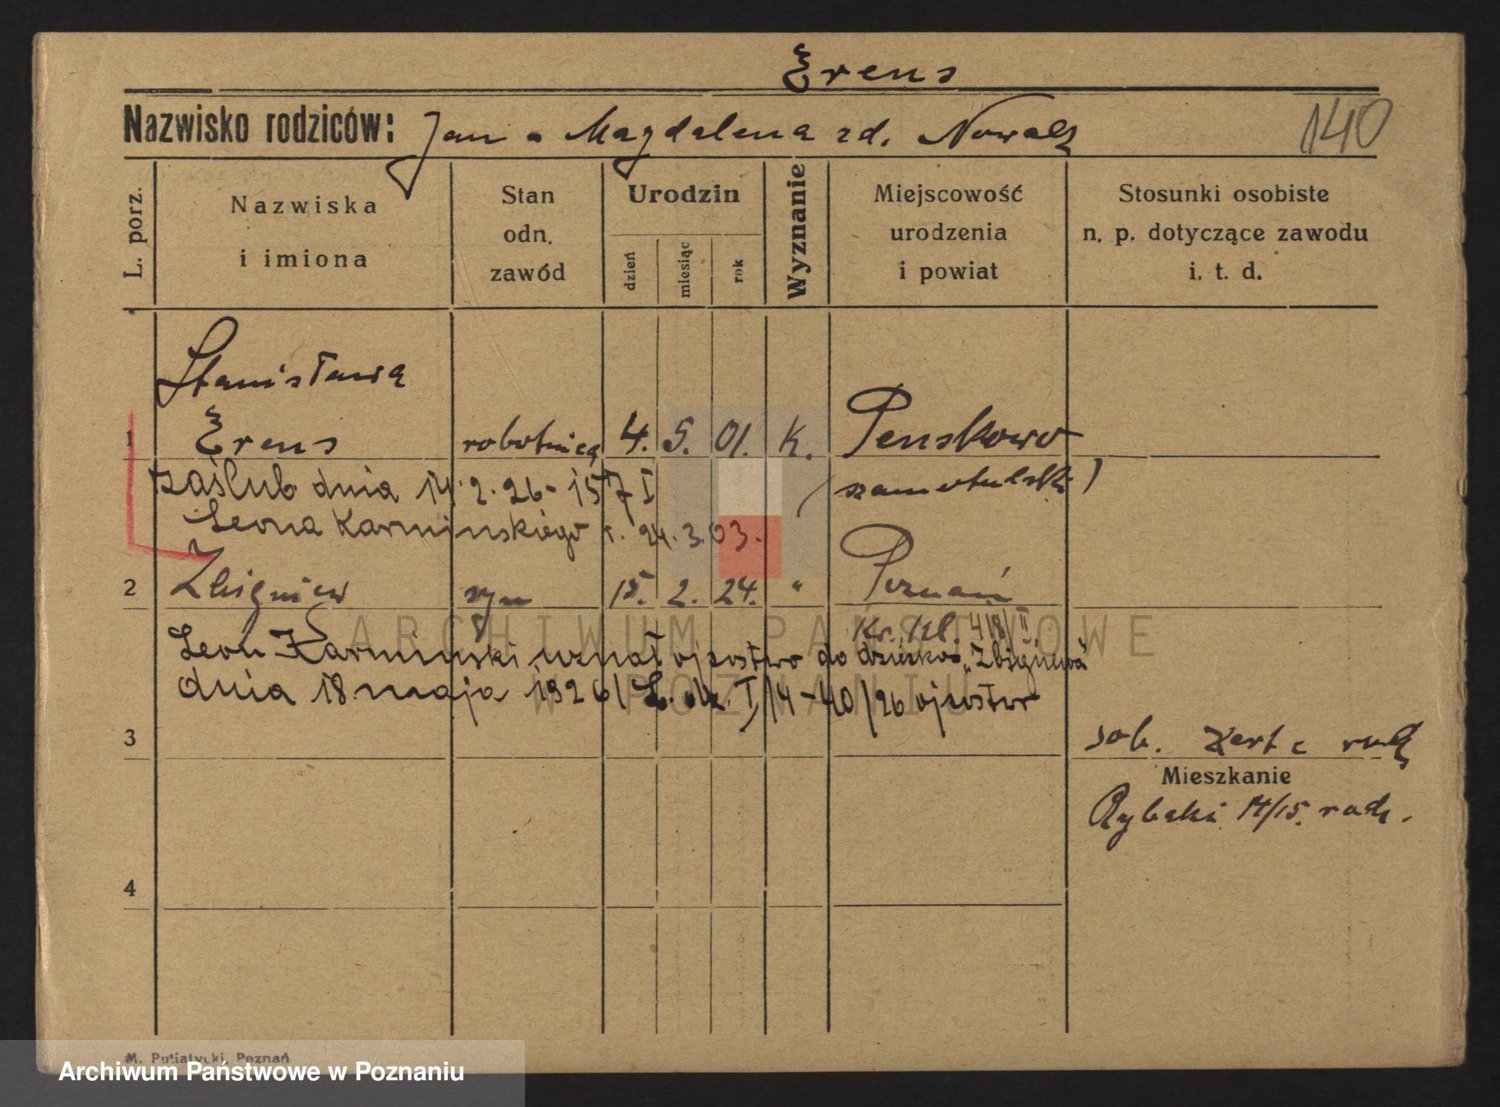 Erens
Nazwisko rodziców: Jan a Magdalena zd. Nowak
140
L. porz.
Nazwiska
i imiona
Stan
odn.
zawód
Urodzin
dzień
miesiąc
rok
Wyznanie
Miejscowość
urodzenia
i powiat
Stosunki osobiste
n. p. dotyczące zawodu
i. t. d.
Stanisława
1 Erens robotnica 4. 5. 01. K. Penskowo
zaślub dnia 14.2.26 - 157 I (szamotulski)
Leona Karmińskiego r. 24.3.03.
2 Zbigniew syn 15. 2. 24. " Poznań
Kr. Kl. 418/II
Leon Karmiński uznał ojcostwo do dziecka "Zbigniewa"
dnia 18 maja 1926 / L. dz. I/4-40/26 ojcostw
3
sob.
Mieszkanie
Rybaki 14/15.
4
M. Putiatycki, Poznań
ARCHIWUM PAŃSTWOWE
W POZNANIU
Archiwum Państwowe w Poznaniu